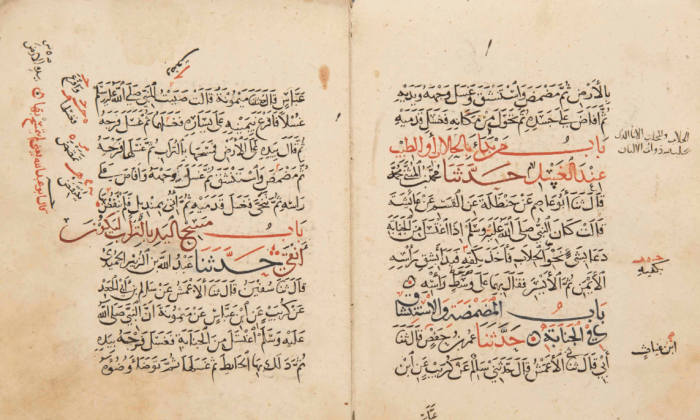 بالأرض ثم مضمض واستنشق وغسل وجهه ويديه
ثم أفاض على جسده ثم تحول من مكانه فغسل قدميه
باب من بدأ بالحلاب أو الطيب
عند الغسل حدثنا محمد بن المثنى
قال ثنا أبو عاصم عن حنظلة عن القسم عن عائشة
قالت كان النبي صلى الله عليه وسلم اذا اغتسل من الجنابة
دعا بشيء نحو الحلاب فأخذ بكفيه فبدأ بشق رأسه
الأيمن ثم الأيسر فقال بهما على وسط رأسه
باب المضمضة والاستنشاق
في الجنابة حدثنا عمر بن حفص قال ثنا
أبي قال ثنا الأعمش قال حدثني سالم عن كريب عن ابن
عباس
بكفيه
ابن غياث
عباس قال حدثتنا ميمونة قالت صببت للنبي صلى الله عليه وسلم
غسلا فافرغ بيمينه على يساره فغسلهما ثم غسل فرجه
ثم قال بيده بالتراب ثم غسلها
ثم مضمض واستنشق ثم غسل وجهه وافاض على
راسه ثم تنحى فغسل قدميه ثم أتي بمنديل فلم ينفض
باب مسح اليد بالتراب لتكون
أنقى حدثنا عبد الله بن الزبير الحميدي
قال ثنا سفين قال ثنا الأعمش عن سالم بن أبي الجعد
عن كريب عن ابن عباس عن ميمونة ان النبي صلى الله
عليه وسلم اغتسل من الجنابة فغسل فرجه بيده
ثم دلك بها الحايط ثم غسلها ثم توضأ وضوءه